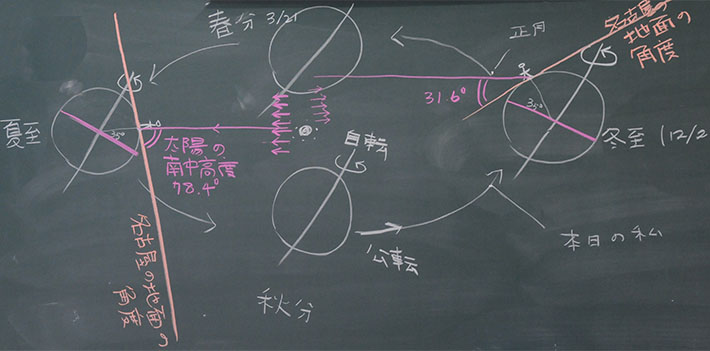 春分 3/21
正月
名古屋の
地面の
角度
31.6°
夏至
35°
太陽の
南中高度
78.4°
35°
冬至 (12/2
自転
公転
本日の私
秋分
名古屋の地面の
角度